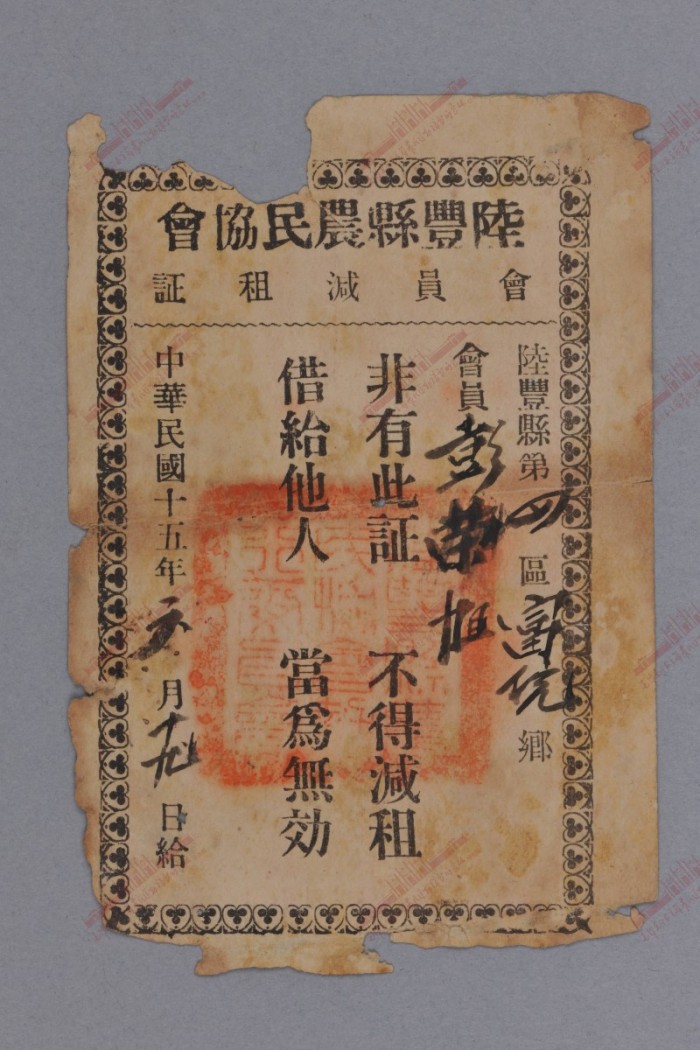 陸豐縣農民協會
會員減租証
陸豐縣第四區鄉
會員彭荣旭
非有此証 不得減租
借給他人 當爲無効
中華民國十五年 月十九日給